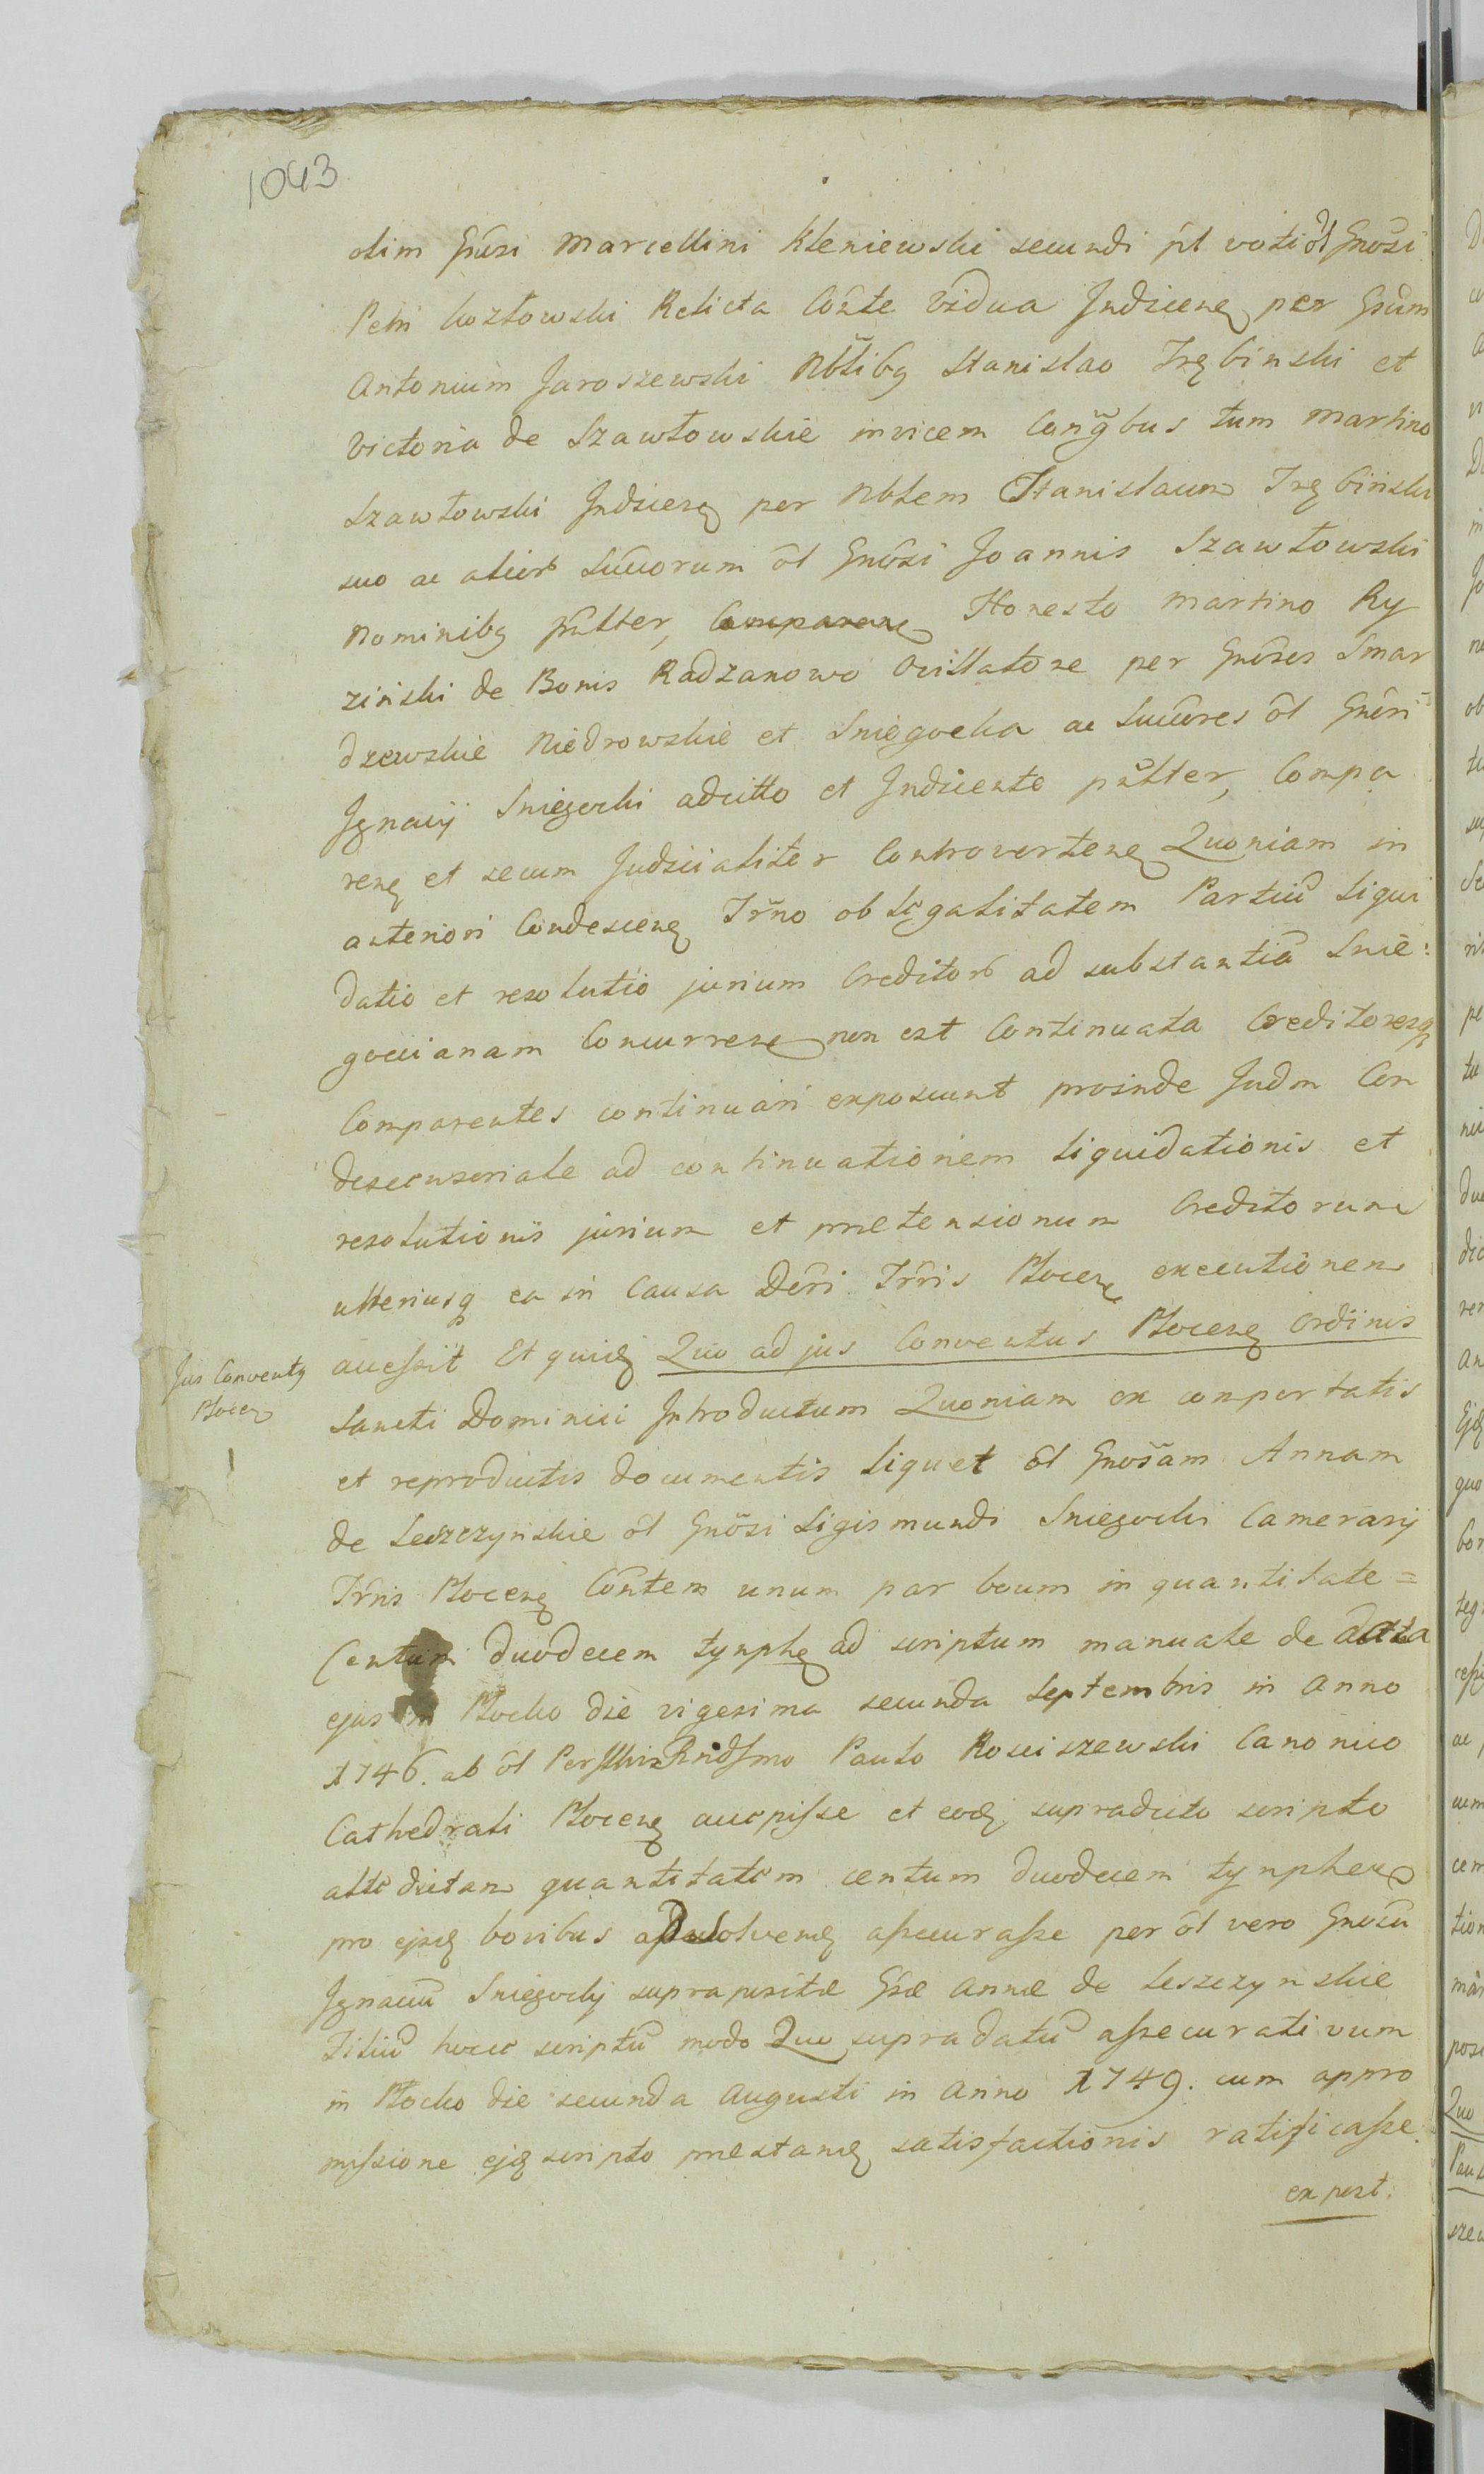 1043
olim Gnrsi Marcellini Kleniewski secundi ſt voti ol Gnosi
Petri Kozłowski Relicta Conte Vidua Indiceneꝫ per Gnūm
Antonium Jaroszewski Nblibꝫ Stanislao Trębinski et
Victoria de Szawłowskie invicem Congbus tum Martino
Szawłowski Indiceneꝫ per Nblem Stanislaum Trębinski
suo ac alior Sucorum ol Gnosi Joannis Szawłowski
Nominibꝫ pnlter, Comparen Honesto Martino Ry
zinski de Bonis Radzanowo Ovillatore per Gnoses Smar
dzewskie Niedrowskie et Sniegocka ac Succres ol Gnosi
Ignacij Sniegocki adcitto et Indicente pnlter, Compa
reneꝫ et secum Judicialiter Controverteneꝫ Quoniam in
anteriori Condesceneꝫ Trno ob legalitatem Partiū Liqui
datio et resolutio jurium Creditor ad substantiā Snie:
gocianam Concurrene non est Continuata Creditoresqꝫ
Comparentes continuari exposcunt proinde Judm Con
descensoriale ad continuationem liquidationis et
resolutionis jurium et prætensionum Creditorum
ulteriusqꝫ ea in Causa Dēri Trris Plocenꝫ executionem
accessit Et quidꝫ Quo ad jus Conventus Plocenꝫ Ordinis
Jus Conventꝫ
Plocen
Sancti Dominici Introductum Quoniam ex comportatis
et reproductis documentis liquet ol Gnosam Annam
de Leszczynskie ol Gnosi Sigismundi Sniegocki Camerarij
Trris Plocenꝫ Contem unum par boum in quantitate =
Centum duodecem tynphꝫ ad scriptum manuale de data
ejus in Plocko die vigesima secunda Septembris in Anno
1746. ab ol Perllri Rndssmo Paulo Rosciszewski Canonico
Cathedrali Plocenꝫ accepisse et eodꝫ supradicto scripto
attidictam quantitatem centum duodecem tynpheꝫ
pro ejsdꝫ bovibus solvendꝫ assecurasse per ol vero Gnosū
Ignaciū Sniegocky suprapositæ Gsæ Annæ de Leszczynskie
Filiū hocce scriptū modo Quo supradatū assecurativum
in Plocko die secunda Augusti in Anno 1749. cum appro
missione ejdꝫ scripto præstandꝫ satisfactionis ratificasse.
ex post.